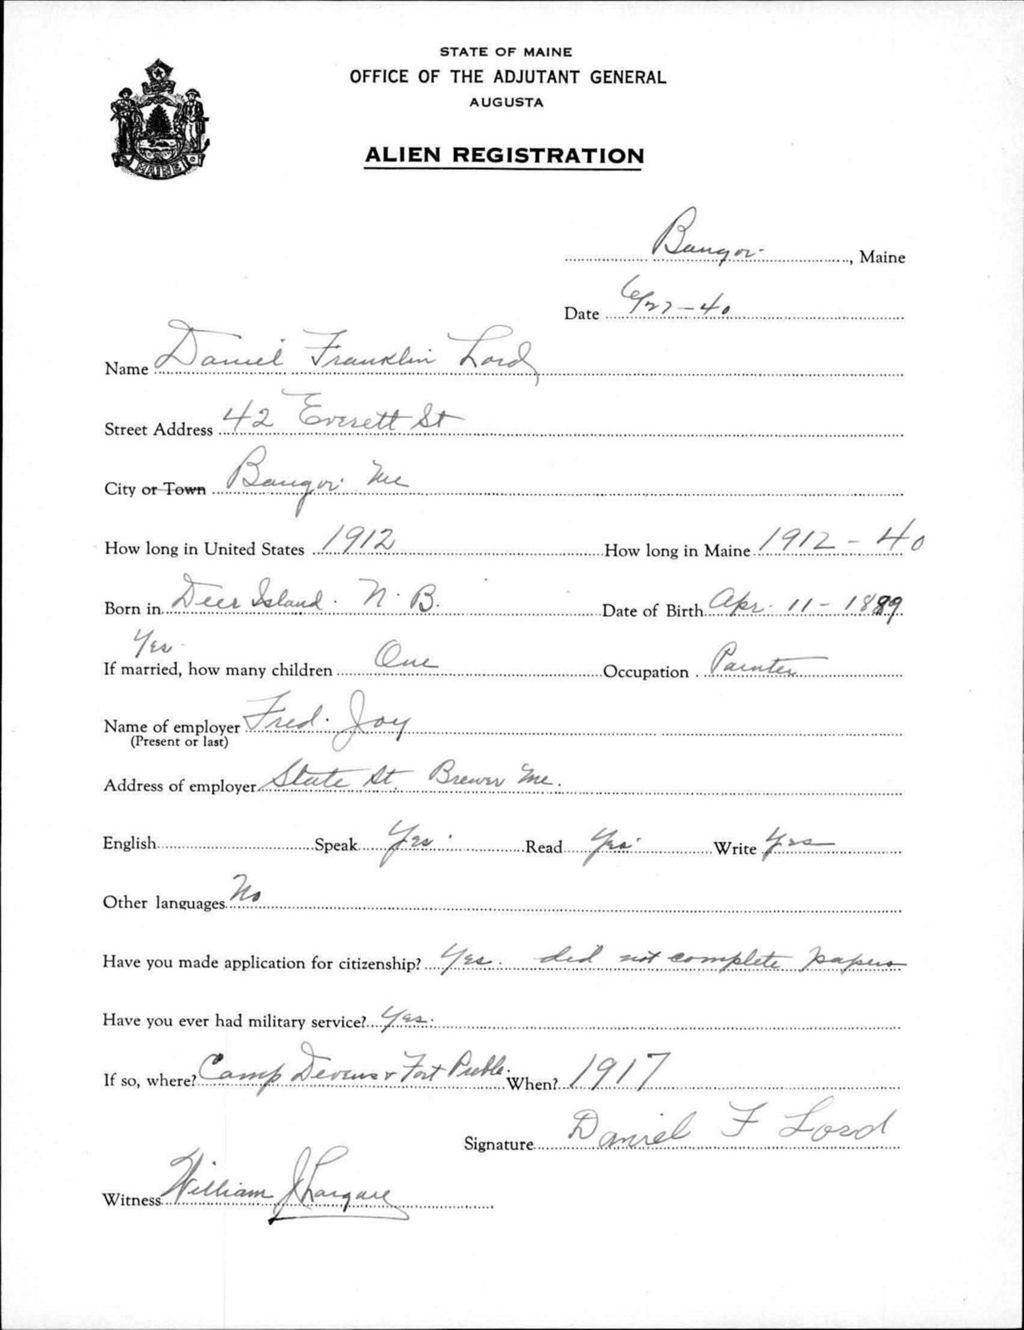 STATE OF MAINE
OFFICE OF THE ADJUTANT GENERAL
AUGUSTA
ALIEN REGISTRATION
MAINE
Bangor, Maine
Date 6/27-40
Name Daniel Franklin Lord
Street Address 42 Everett St
City or Town Bangor Me
How long in United States 1912 How long in Maine 1912 - 40
Born in Deer Island. N. B. Date of Birth Apr. 11 - 1889
Yes
If married, how many children One Occupation Painter
Name of employer Fred. Joy
(Present or last)
Address of employer State St. Brewer Me.
English Speak Yes. Read Yes. Write Yes
Other languages No
Have you made application for citizenship? Yes. did not complete papers
Have you ever had military service? Yes.
If so, where? Camp Devens & Fort Preble. When? 1917
Signature Daniel F Lord
Witness William J